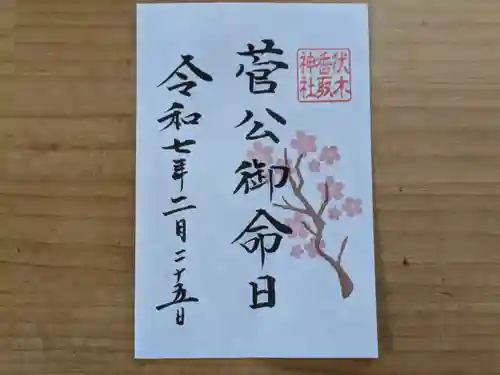 伏木
香取
神社
菅公御命日
令和七年二月二十五日